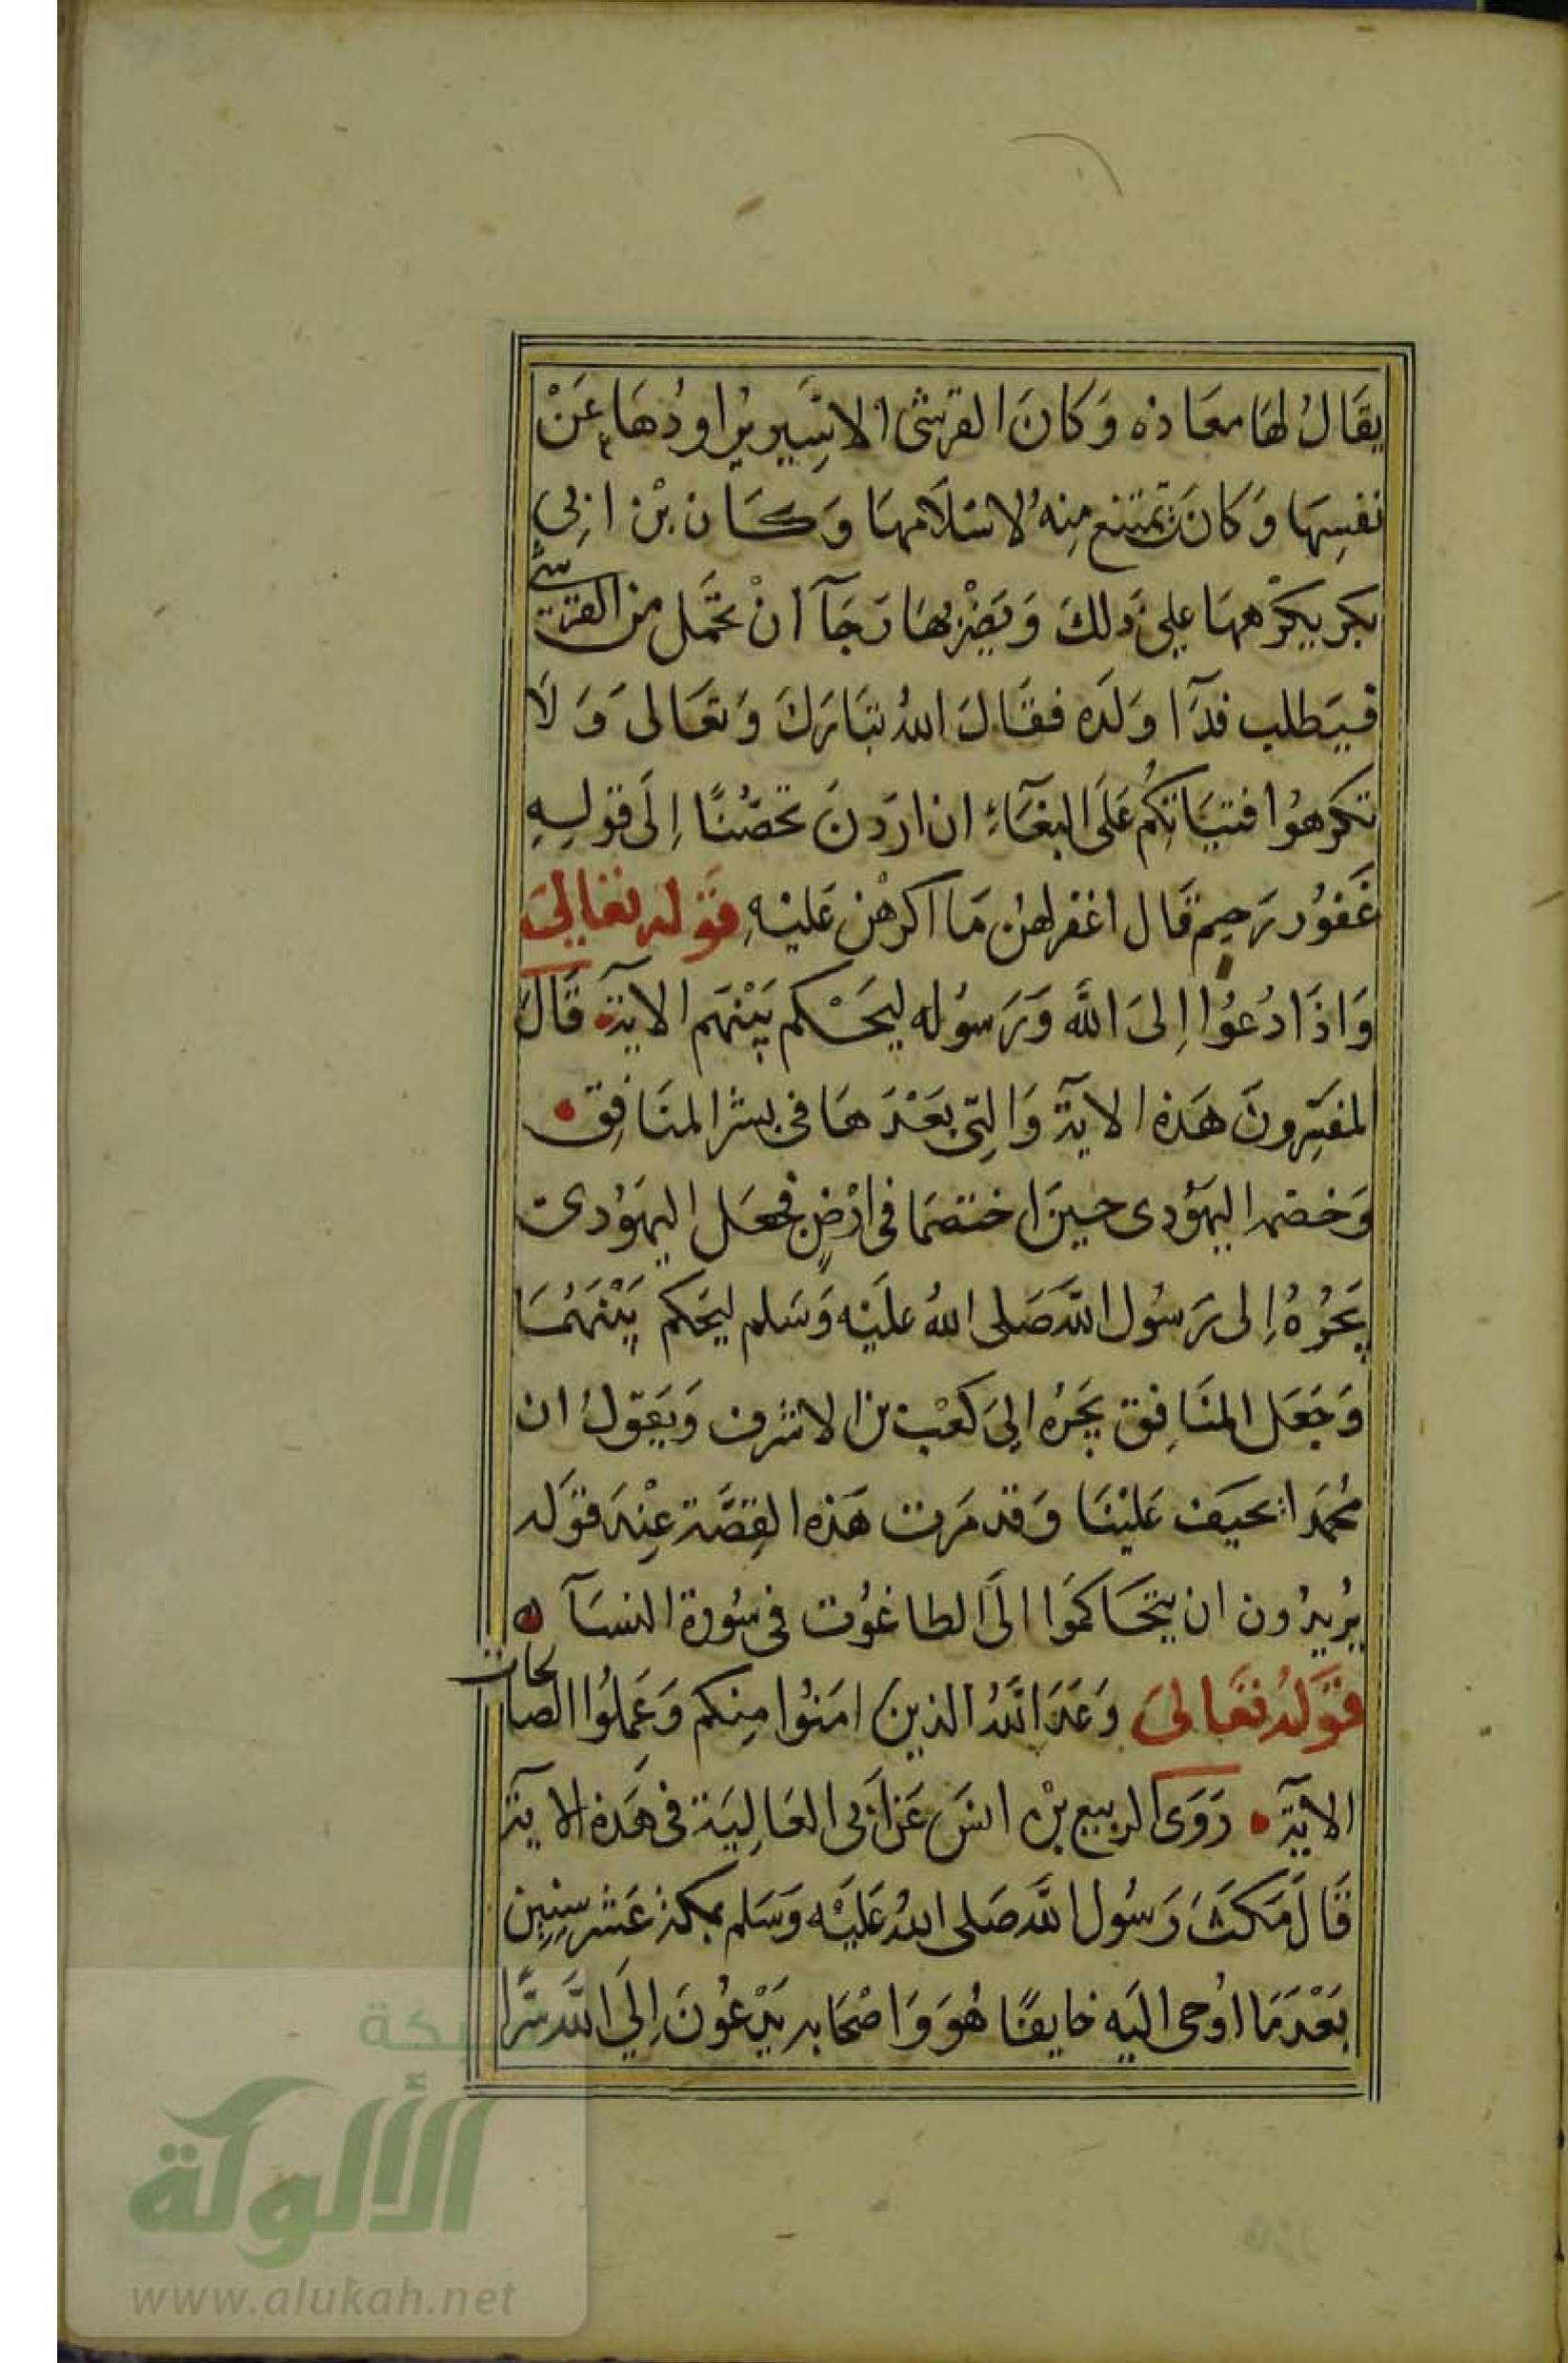 يقَالُ لهَا معَاذه وَكانَ القرشى الاسِير يراودُهَا عَنْ
نفسِهَا وَكانَت تمتنع مِنهُ لاسْلَامهَا وَكَان بْن ابِي
بكر يكرْههَا علي ذَلكَ وَيَضْربهَا رَجَآ أنْ تحمَل من القرشي
فيَطلب فدَآ وَلَده فقَالَ اللهُ تبَارَكَ وَتعَالى وَلَا
تكرهُوا فتيَاتكُم عَلَى البغَآءِ ان ارَدنَ تحصّنًا اِلَى قولِهِ
غَفوُر رَحِيم قَال اغفر لهن مَا اكرهْن عَليْهِ قوَله تعَالىَ
وَاذَا دُعُوا اِلىَ اللَّه وَرَسوُله ليحَْكم بَيْنهَم الايَة قَالَ
المفسِّرونَ هَذه الايَة وَالتِى بَعْدَهَا فى بشر المنَافِق
وَخصْمه اليهَوُدى حِينَ اختصَمَا فى ارْضٍ فجعَل اليهوُدى
يَجُرُهُ اِلى رَسُول اللَّه صَلى اللهُ علَيْه وَسَلم ليحَكم بَيْنَهُمَا
وَجَعَل المنَافِق يجَرُه الىَ كعْب بن الاشرف وَيَقولُ ان
مُحمَدا يحيَف عَليْنَا وَقد مَرت هَذه القِصَّة عِنْدَ قوَله
يُريدُون ان يتحَاكمَوا الَى الطاغوُت فى سُورة النسَآ
قوَلهُ تعَالىَ وَعَدَ اللهُ الذين امَنوُا مِنكم وَعَمِلوُا الصالحات
الايَة رَوَى الربيع بْن انسَ عَن اَبى العَالِيَة فى هَذه الايَة
قَالَ مَكثَ رَسُول اللَّه صَلى اللهُ عَليَْه وَسَلم بمكة عَشر سِنِين
بَعْدَ مَا اوُحى اليَه خايفًا هُوَ وَاصْحَابه يَدْعُونَ اِلَي اللَّه سرَّا
شبكة
الألوكة
www.alukah.net